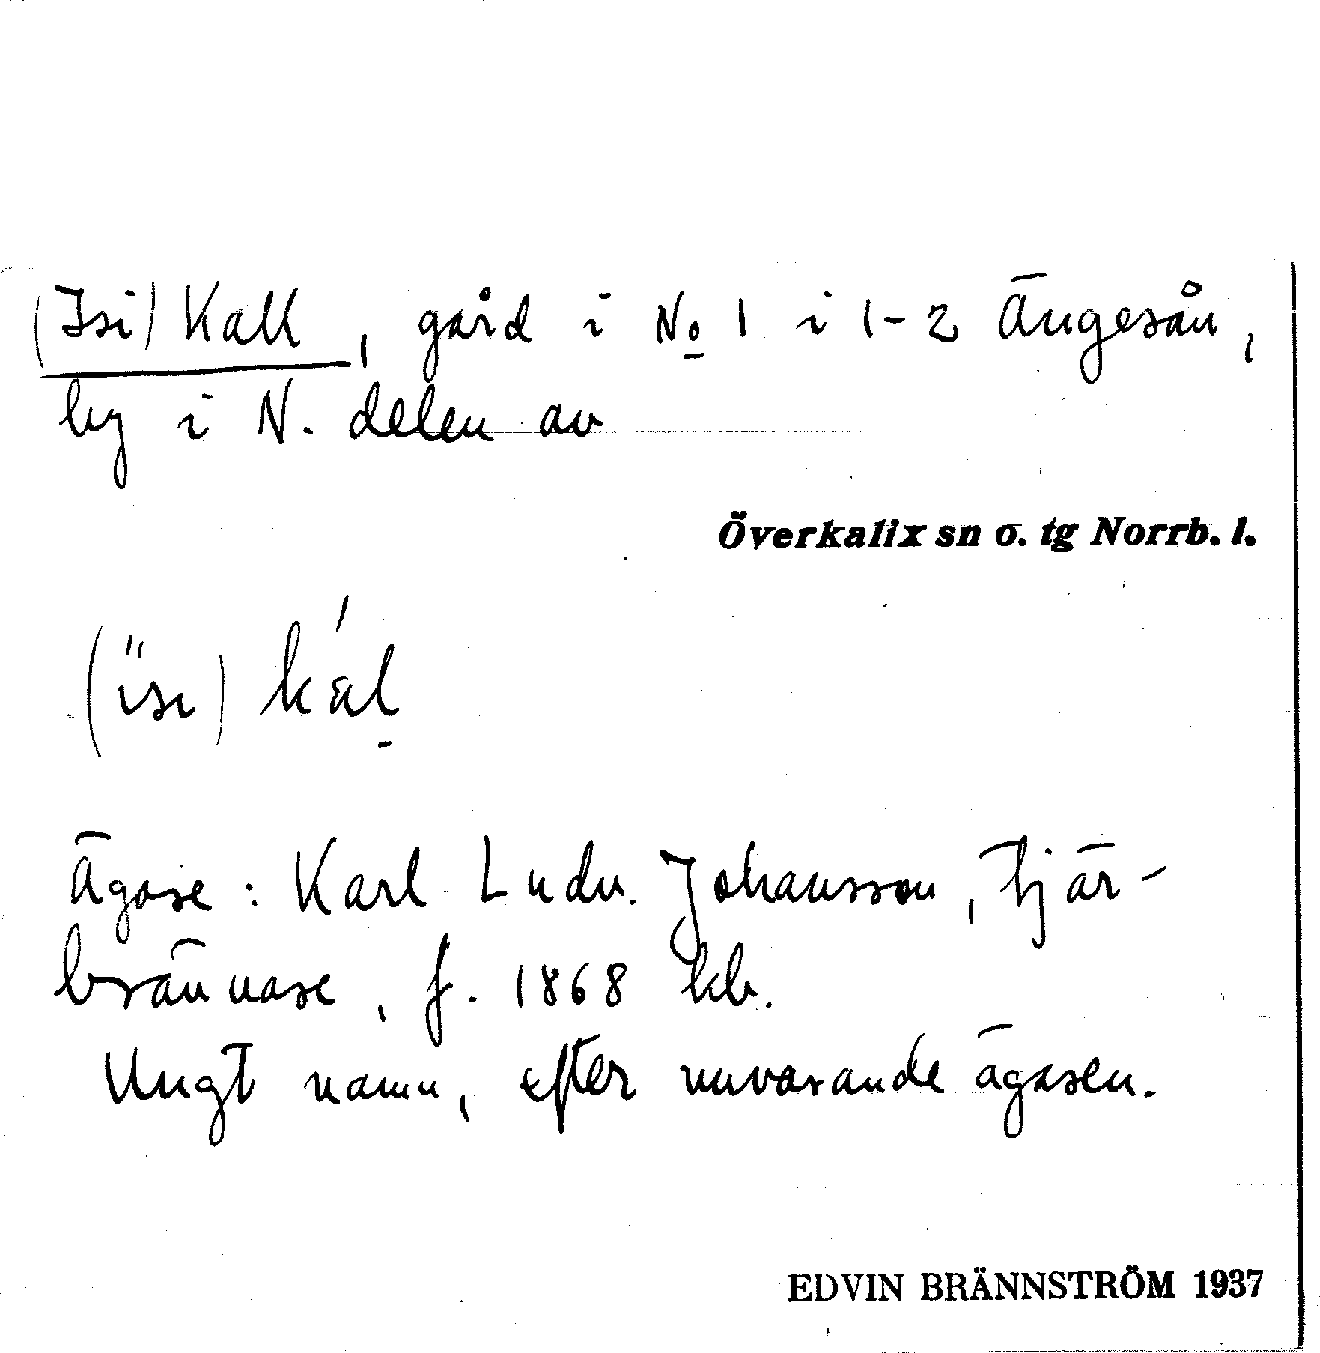 (Isi) Kall, gård i No 1 i 1-2 Ängesån,
by i N. delen av
Överkalix sn o. tg Norrb. l.
(ïsı) kál̠
Ägare: Karl Ludv. Johansson, tjär-
brännare, f. 1868 kb.
Ungt namn, efter nuvarande ägaren.
EDVIN BRÄNNSTRÖM 1937